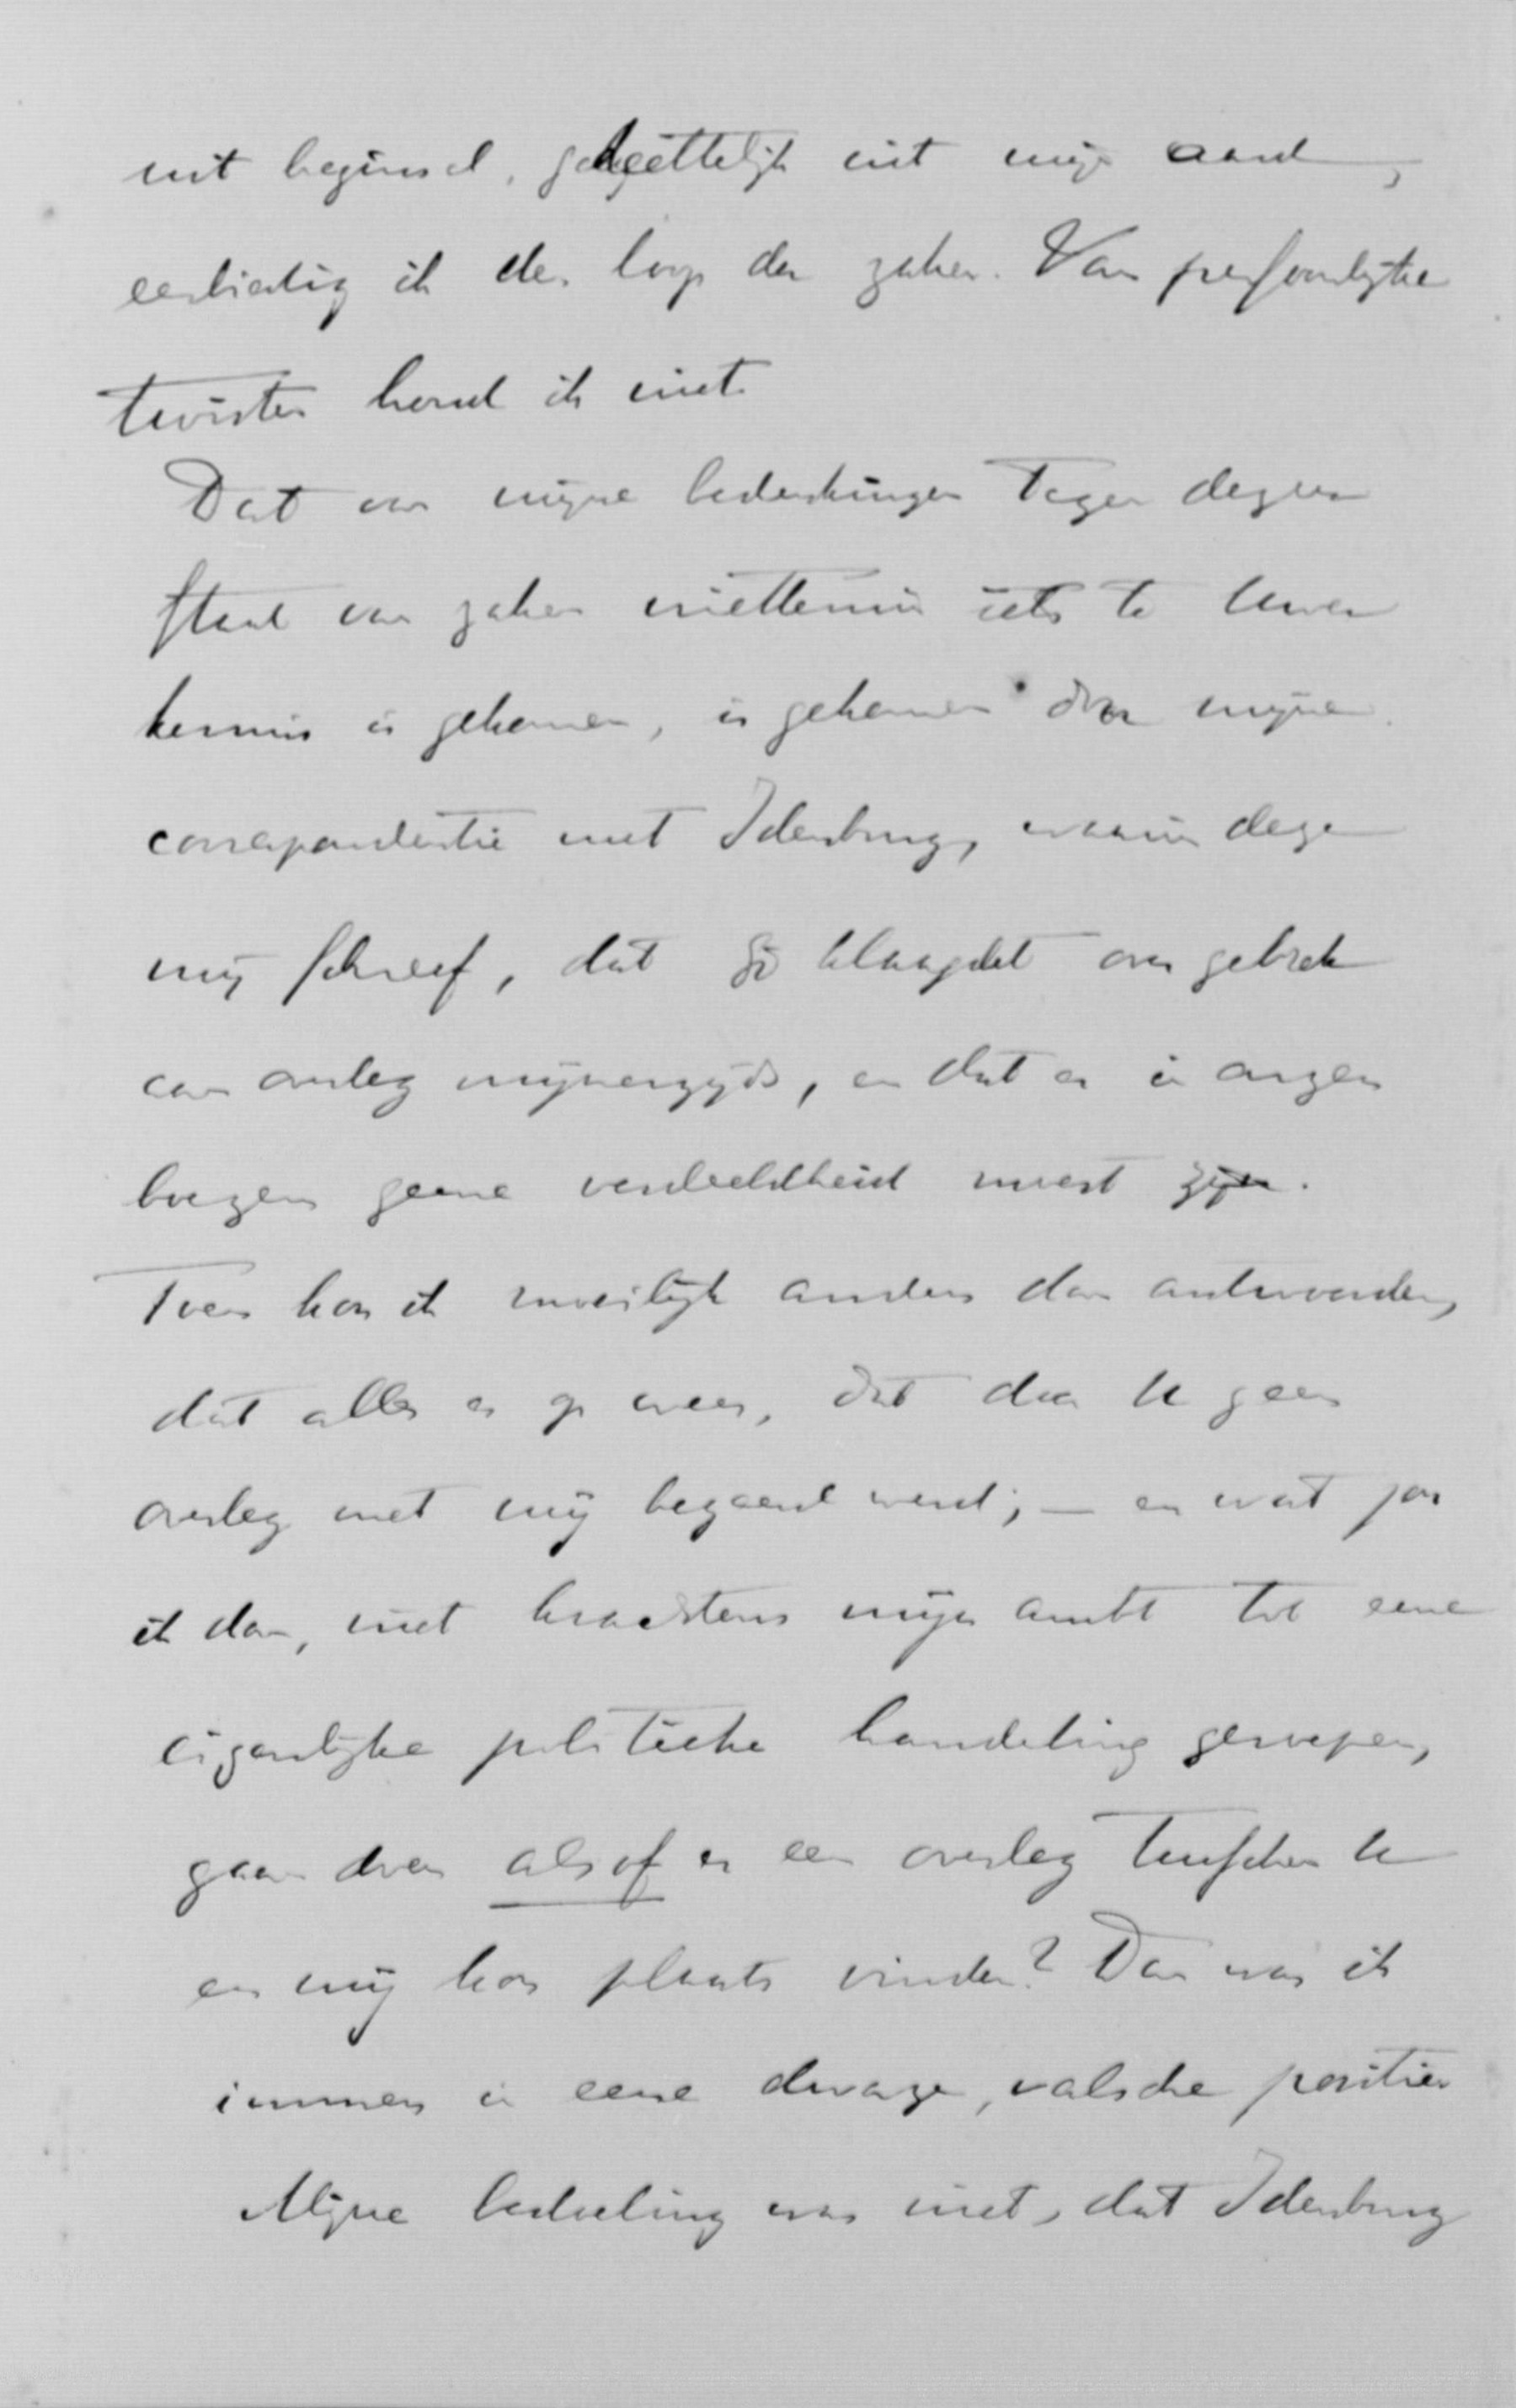 uit beginsel, gedeeltelijk uit mijn aard,
eerbiedig ik den loop der zaken. Van persoonlijke
twisten houd ik niet.
Dat van mijne bedenkingen tegen dezen
staat van zaken niettemin iets te Uwer
kennis is gekomen, is gekomen door mijne
correspondentie met Idenburg, waarin deze
mij schreef, dat gij klaagdet over gebrek
aan overleg mijnerzijds, en dat er in onzen
boezem geene verdeeldheid moest zijn.
Toen kon ik moeilijk anders dan antwoorden,
dat alles er op wees, dat door U geen
overleg met mij begeerd werd; — en wat zou
ik dan, niet krachtens mijn ambt tot eene
eigenlijke politieke handeling geroepen,
gaan doen alsof er een overleg tusschen U
en mij kon plaats vinden? Dan was ik
immers in eene dwaze, valsche positie.
Mijne bedoeling was niet, dat Idenburg